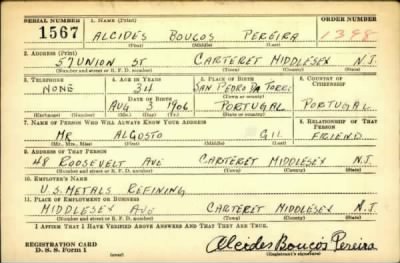 SERIAL NUMBER 1. NAME (Print) ORDER NUMBER
1567 ALCIDES BOUCOS PEREIRA 1398
(First) (Middle) (Last)
2. ADDRESS (Print)
57 UNION ST CARTERET MIDDLESEX N.J.
(Number and street or R. F. D. number) (Town) (County) (State)
3. TELEPHONE 4. AGE IN YEARS 5. PLACE OF BIRTH 6. COUNTRY OF CITIZENSHIP
NONE 34 SAN PEDRO DA TORRE
DATE OF BIRTH (Town or county)
AUG 3 1906 PORTUGAL PORTUGAL
(Exchange) (Number) (Mo.) (Day) (Yr.) (State or country)
7. NAME OF PERSON WHO WILL ALWAYS KNOW YOUR ADDRESS 8. RELATIONSHIP OF THAT PERSON
MR ALGOSTO GIL FRIEND
(Mr., Mrs., Miss) (First) (Middle) (Last)
9. ADDRESS OF THAT PERSON
48 ROOSEVELT AVE CARTERET MIDDLESEX N.J.
(Number and street or R. F. D. number) (Town) (County) (State)
10. EMPLOYER'S NAME
U.S. METALS REFINING
11. PLACE OF EMPLOYMENT OR BUSINESS
MIDDLESEX AVE CARTERET MIDDLESEX N.J.
(Number and street or R. F. D. number) (Town) (County) (State)
I AFFIRM THAT I HAVE VERIFIED ABOVE ANSWERS AND THAT THEY ARE TRUE.
REGISTRATION CARD
D. S. S. Form 1 (over) Alcides Bouços Pereira
(Registrant's signature)